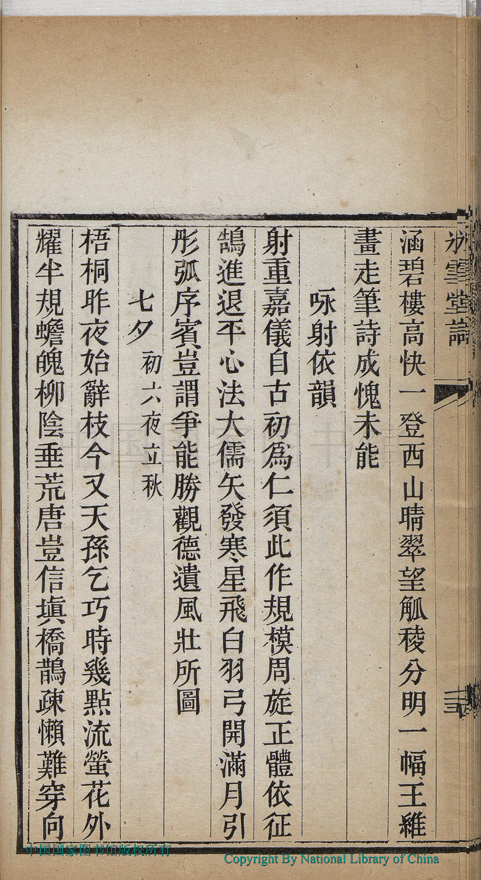 涵碧樓高快一登西山晴翠望觚稜分明一幅王維
畫走筆詩成愧未能
咏射依韻
射重嘉儀自古初為仁須此作規模周旋正體依征
鵠進退平心法大儒矢發寒星飛白羽弓開滿月引
彤弧序賓豈謂爭能勝觀德遺風壯所圖
七夕 初六夜立秋
梧桐昨夜始辭枝今又天孫乞巧時幾點流螢花外
耀半規蟾魄柳陰垂荒唐豈信塡橋鵲疎懶難穿向
中国国家图书馆版权所有
Copyright By National Library of China